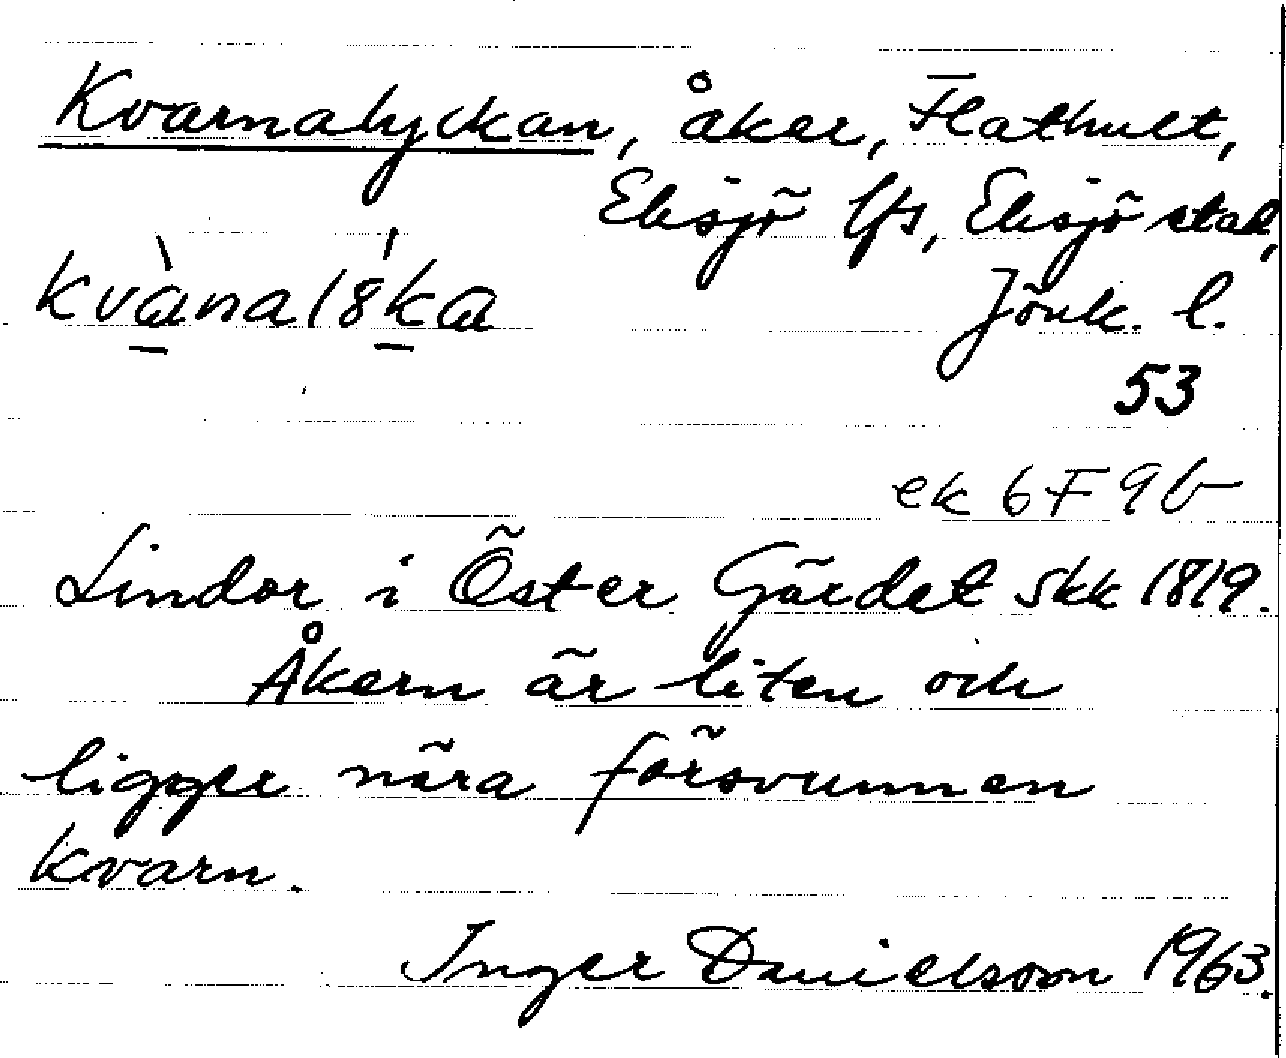 Kvarnalyckan, åker, Flathult,
Eksjö lfs, Eksjö stad,
kvὰnal8́kα
Jönk. l.
53
ek 6F 9b
Lindor i Öster Gärdet skk 1819.
Åkern är liten och
ligger nära försvunnen
kvarn.
Inger Danielsson 1963.